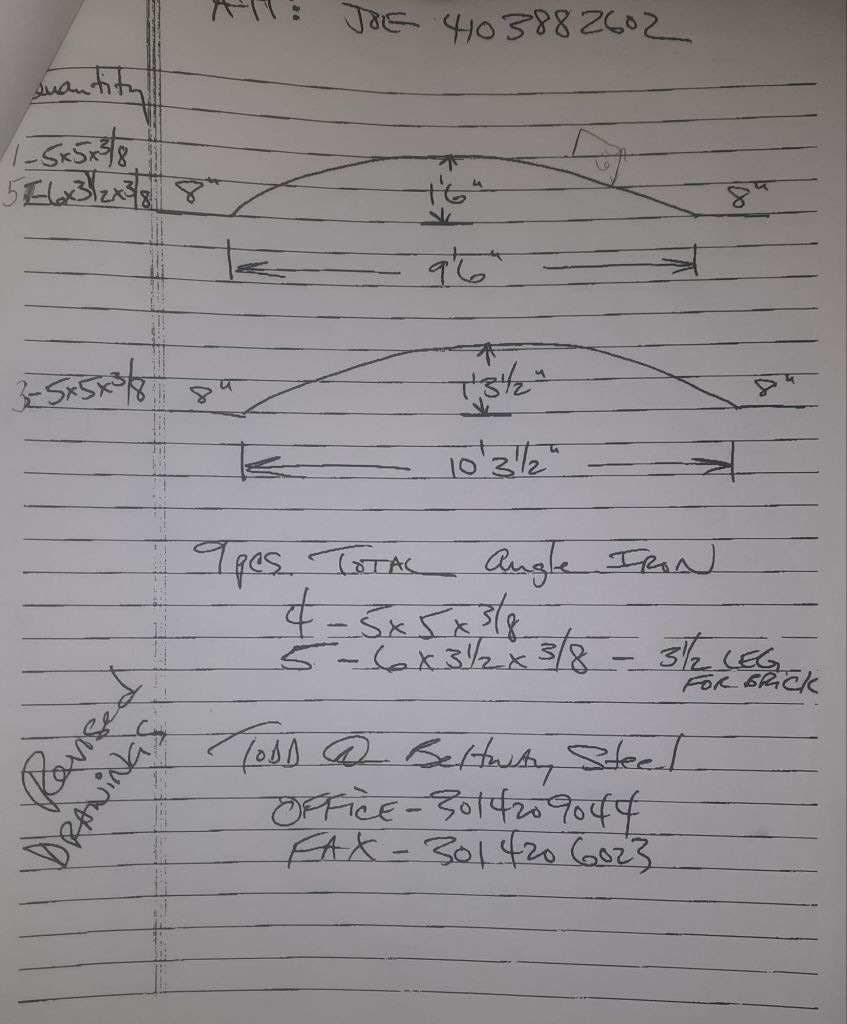 Att: JOE 4103882602
Quantity
1-5x5x3/8
5-6x3 1/2x3/8 8" 1'6" 8"
9'6"
3-5x5x3/8 8" 1'3 1/2" 8"
10'3 1/2"
9 pcs TOTAL Angle IRON
4-5x5x3/8
5-6x3 1/2x3/8 - 3 1/2 LEG
FOR BRICK
Revised
DRAWING
TODD @ Beltway Steel
OFFICE-3014209044
FAX-3014206023